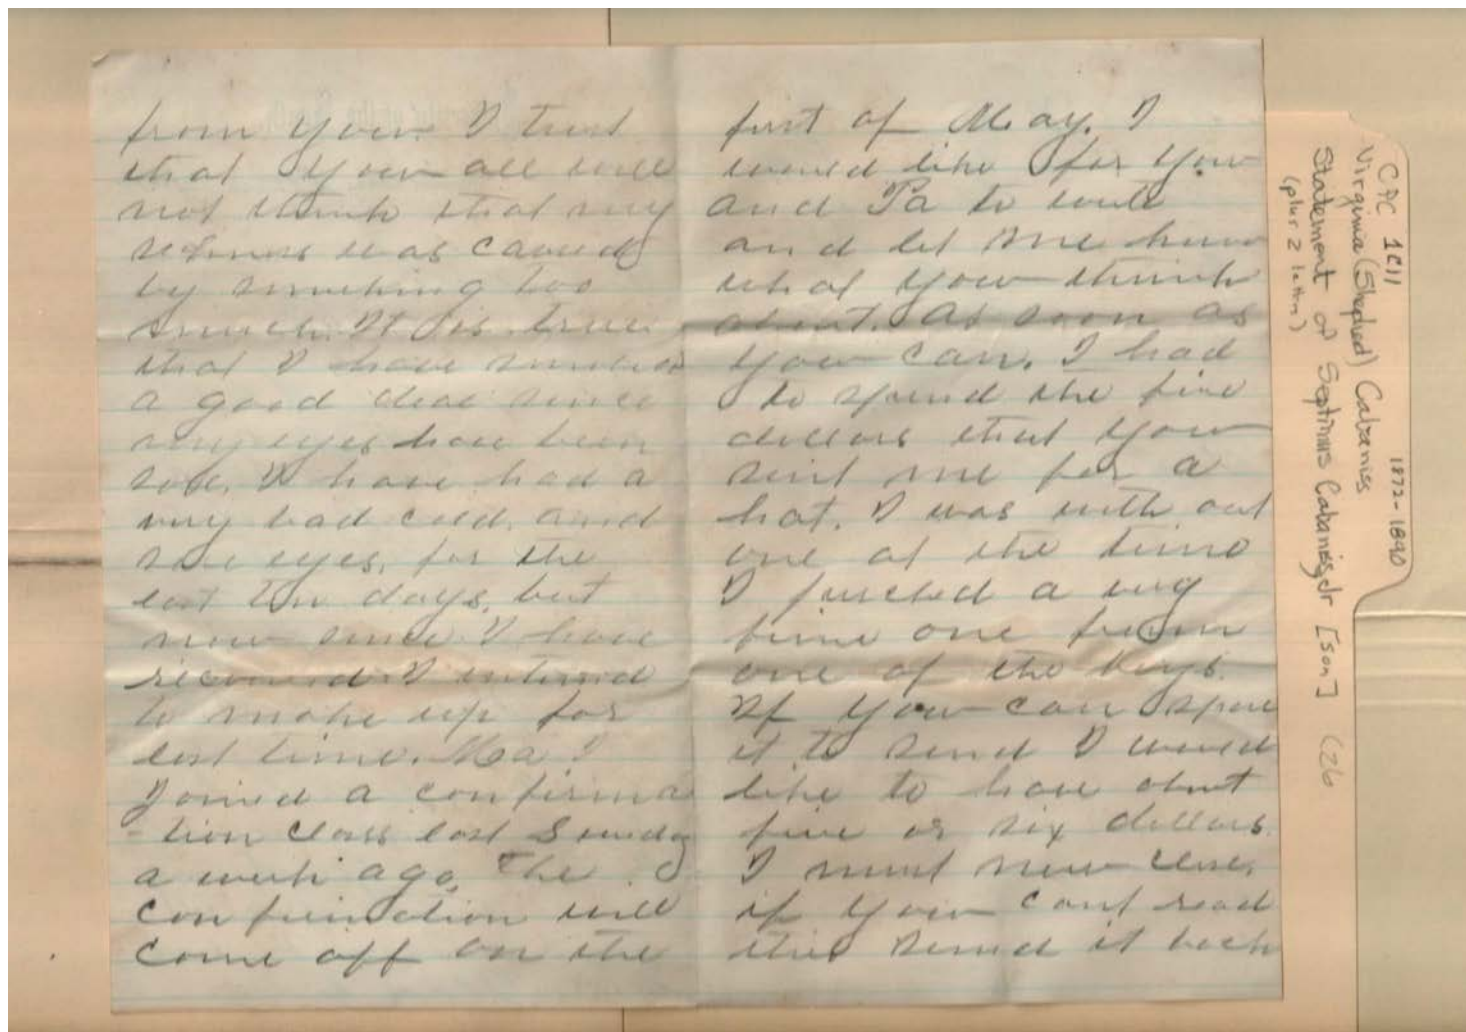 from you. I trust
that you all will
not think that my
sickness was caused
by smoking too
much. It is true
that I have smoked
a good deal since
my eyes have been
sore. I have had a
very bad cold, and
sore eyes, for the
last ten days, but
now since I have
recovered I intend
to make up for
lost time. Ma I
joined a confirma
-tion class last Sunday
a week ago. The
confirmation will
come off on the
first of May. I
would like for you
and Pa to write
and let me know
what you think
about. as soon as
you can. I had
to spend the five
dollars that you
sent me for a
hat. I was with out
one at the time
I purched a very
fine one from
one of the boys.
If you can spare
it to send I would
like to have about
five or six dollars.
I must now close,
if you cant read
this send it back
CPC 1C11 1872-1890
Virginia (Shepherd) Cabaniss
Statement of Septimus Cabaniss, Jr [son] (26
(plus 2 letters)